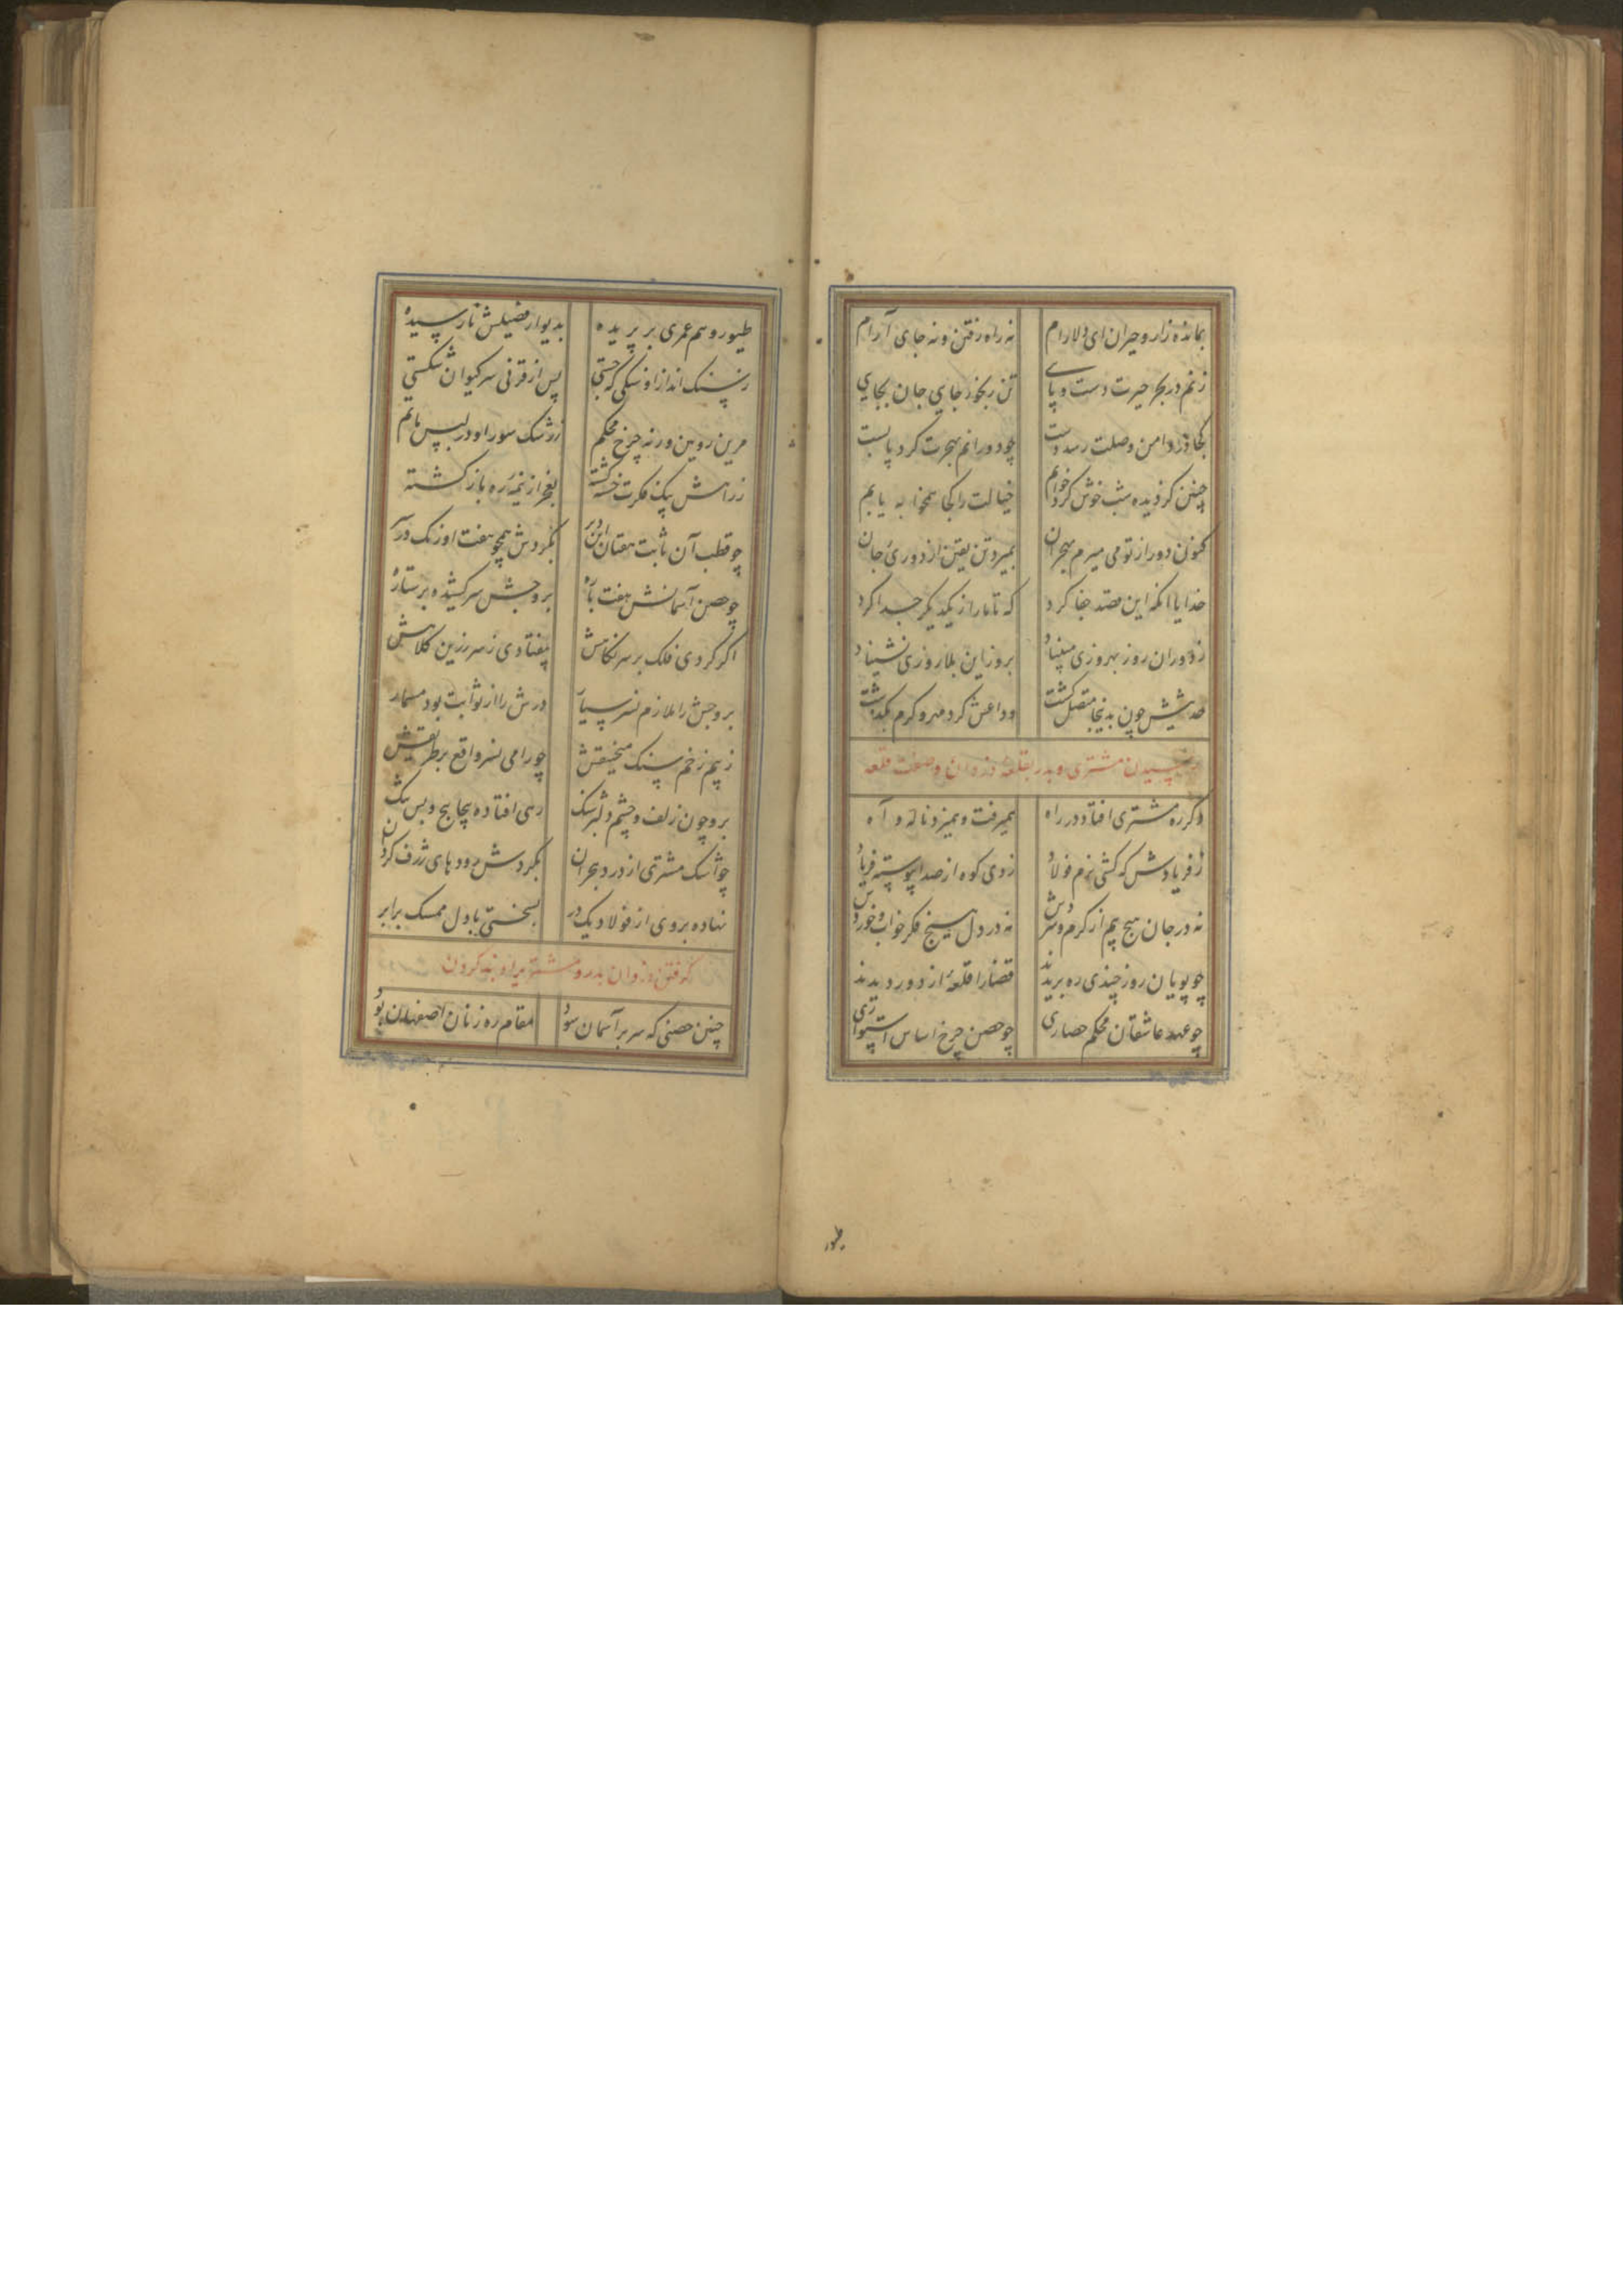 بمانده زار و حیران ای دلارام نه راه رفتن و نه جای آرام
زنم در بحر حیرت دست و پای تن رنجور جایی جان بجایی
کجا در دامن وصلت رسد دست چو دورانم بهجرت کرد پابست
چنین کز دیده شب خوش کرد خوابم خیالت را کجا همخوابه یابم
کنون دور از تو می میرم بهجران بمیرد تن یقین از دوری جان
خدایا آنکه این قصد جفا کرد که تا ما را ز یکدیگر جدا کرد
ز دوران روز بهروزی مبیناد بروز این بلا روزی نشیناد
حدیثش چون بدینجا متصل گشت وداعش کرد مهر و گرم بگذشت
رسیدن مشتری و بدر بقلعه دزدان و صفت قلعه
دگر ره مشتری افتاد در راه همیرفت و همیزد ناله و آه
ز فریادش که گشتی نرم فولاد زدی کوه از صدا پیوسته فریاد
نه در جان هیچ بیم از گرم و سردش نه در دل هیچ فکر خواب و خوردش
چو پویان روز چندی ره بریدند قضا را قلعهٔ از دور دیدند
چو عهد عاشقان محکم حصاری چو حصن چرخ اساس استواری
طیور
طیور وهم عمری بر پریده بدیوار فصیلش نارسیده
ز سنگ انداز او سنگی که جستی پس از قرنی سر کیوان شکستی
مرین رویین ورنه چرخ محکم ز رشک سور او در لبس ماتم
ز راهش پیک فکرت خسته گشته بعجز از نیمهٔ ره باز گشته
چو قطب آن ثابت هفتان این در بگردش همچو هفت اورنگ در
چو حصن آسمانش هفت باره بروجش سر کشیده بر ستاره
اگر کردی فلک بر سر نگاهش بیفتادی ز سر زرین کلاهش
بروجش را ملازم نسر سیار درش را از ثوابت بود مسمار
ز بیم زخم سنگ منجنیقش چو رامی نسر واقع بر طریقش
برو چون زلف و چشم دلبر شنگ رهی افتاده پیچاپیچ و بس تنگ
چو اشک مشتری از درد هجران بگردش رودهای ژرف گردان
نهاده بروی از فولاد یک در بسختی با دل ممسک برابر
گرفتن دزدان بدر و مشتریرا و بند کردن
چنین حصنی که سر بر آسمان سود مقام ره زنان اصفهان بود